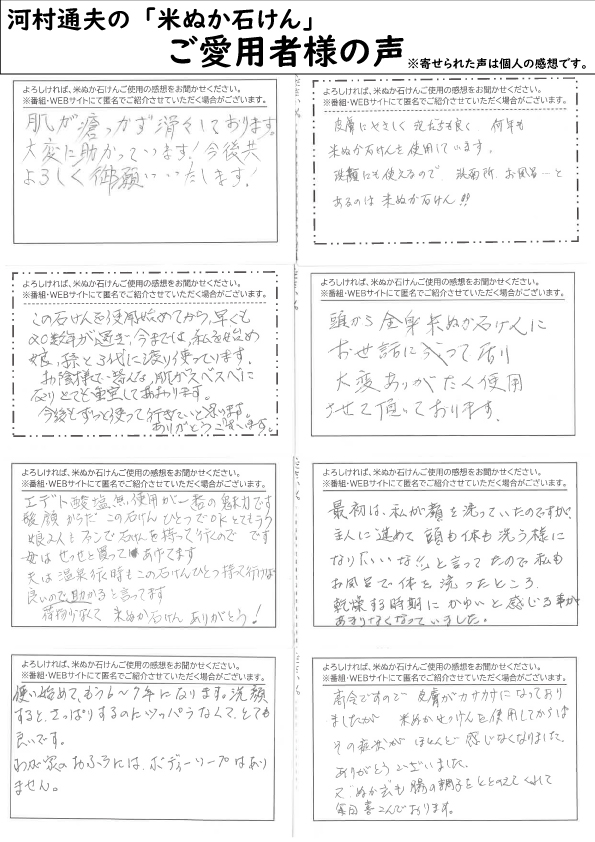 河村通夫の「米ぬか石けん」
ご愛用者様の声
※寄せられた声は個人の感想です。
よろしければ、米ぬか石けんご使用の感想をお聞かせください。
※番組・WEBサイトにて匿名でご紹介させていただく場合がございます。
肌が滑々しております。
大変に助かっています!今後共
よろしく御願いいたします!
よろしければ、米ぬか石けんご使用の感想をお聞かせください。
※番組・WEBサイトにて匿名でご紹介させていただく場合がございます。
皮膚にやさしく 泡だちも良く、何年も
米ぬか石けんを使用しています。
洗顔にも使えるので、洗面所、お風呂…と
あるのは米ぬか石けん!!
よろしければ、米ぬか石けんご使用の感想をお聞かせください。
※番組・WEBサイトにて匿名でご紹介させていただく場合がございます。
この石けんを使用始めてから、早くも
20数年が過ぎ、今までは、私を始め
娘、孫と3代に渡り使っています。
お陰様で、皆んな、肌がスベスベに
なりとても重宝してあまります。
今後もずっと使って行きたいと思います。
ありがとうございます。
よろしければ、米ぬか石けんご使用の感想をお聞かせください。
※番組・WEBサイトにて匿名でご紹介させていただく場合がございます。
頭から全身米ぬか石けんに
お世話になって居り
大変ありがたく使用
させて頂いております。
よろしければ、米ぬか石けんご使用の感想をお聞かせください。
※番組・WEBサイトにて匿名でご紹介させていただく場合がございます。
エデト酸塩 無使用が一番の魅力です
酸顔 からだ この石けんひとつでOK とてもラク
娘2人も石けんを持って行くので です
母は せっせと買って あげてます
夫は温泉行時もこの石けんひとつ持って行けば
良いので助かると言ってます
荷物少なくて 米ぬか石けん ありがとう!
よろしければ、米ぬか石けんご使用の感想をお聞かせください。
※番組・WEBサイトにて匿名でご紹介させていただく場合がございます。
最初は、私が顔を洗っていたのですが、
主人に進めて 頭も体も洗う様に
なり「いいな」と言ってたので私も
お風呂で体を洗ったところ、
乾燥する時期に かゆいと感じる事が
あまりなくなっていました。
よろしければ、米ぬか石けんご使用の感想をお聞かせください。
※番組・WEBサイトにて匿名でご紹介させていただく場合がございます。
使い始めて、もう6~7年になります。洗顔
すると、さっぱりするのにツッパラなくて、とても
良いです。
わが家のおふろには、ボディーソープはあり
ません。
よろしければ、米ぬか石けんご使用の感想をお聞かせください。
※番組・WEBサイトにて匿名でご紹介させていただく場合がございます。
高令ですので 皮膚がカサカサになっており
ましたが 米ぬかせっけんを使用してからは
その症状が ほとんど 感じなくなりました。
ありがとうございました。
又、ぬか玄も 腸の調子をととのえてくれて
毎日喜こんでおります。